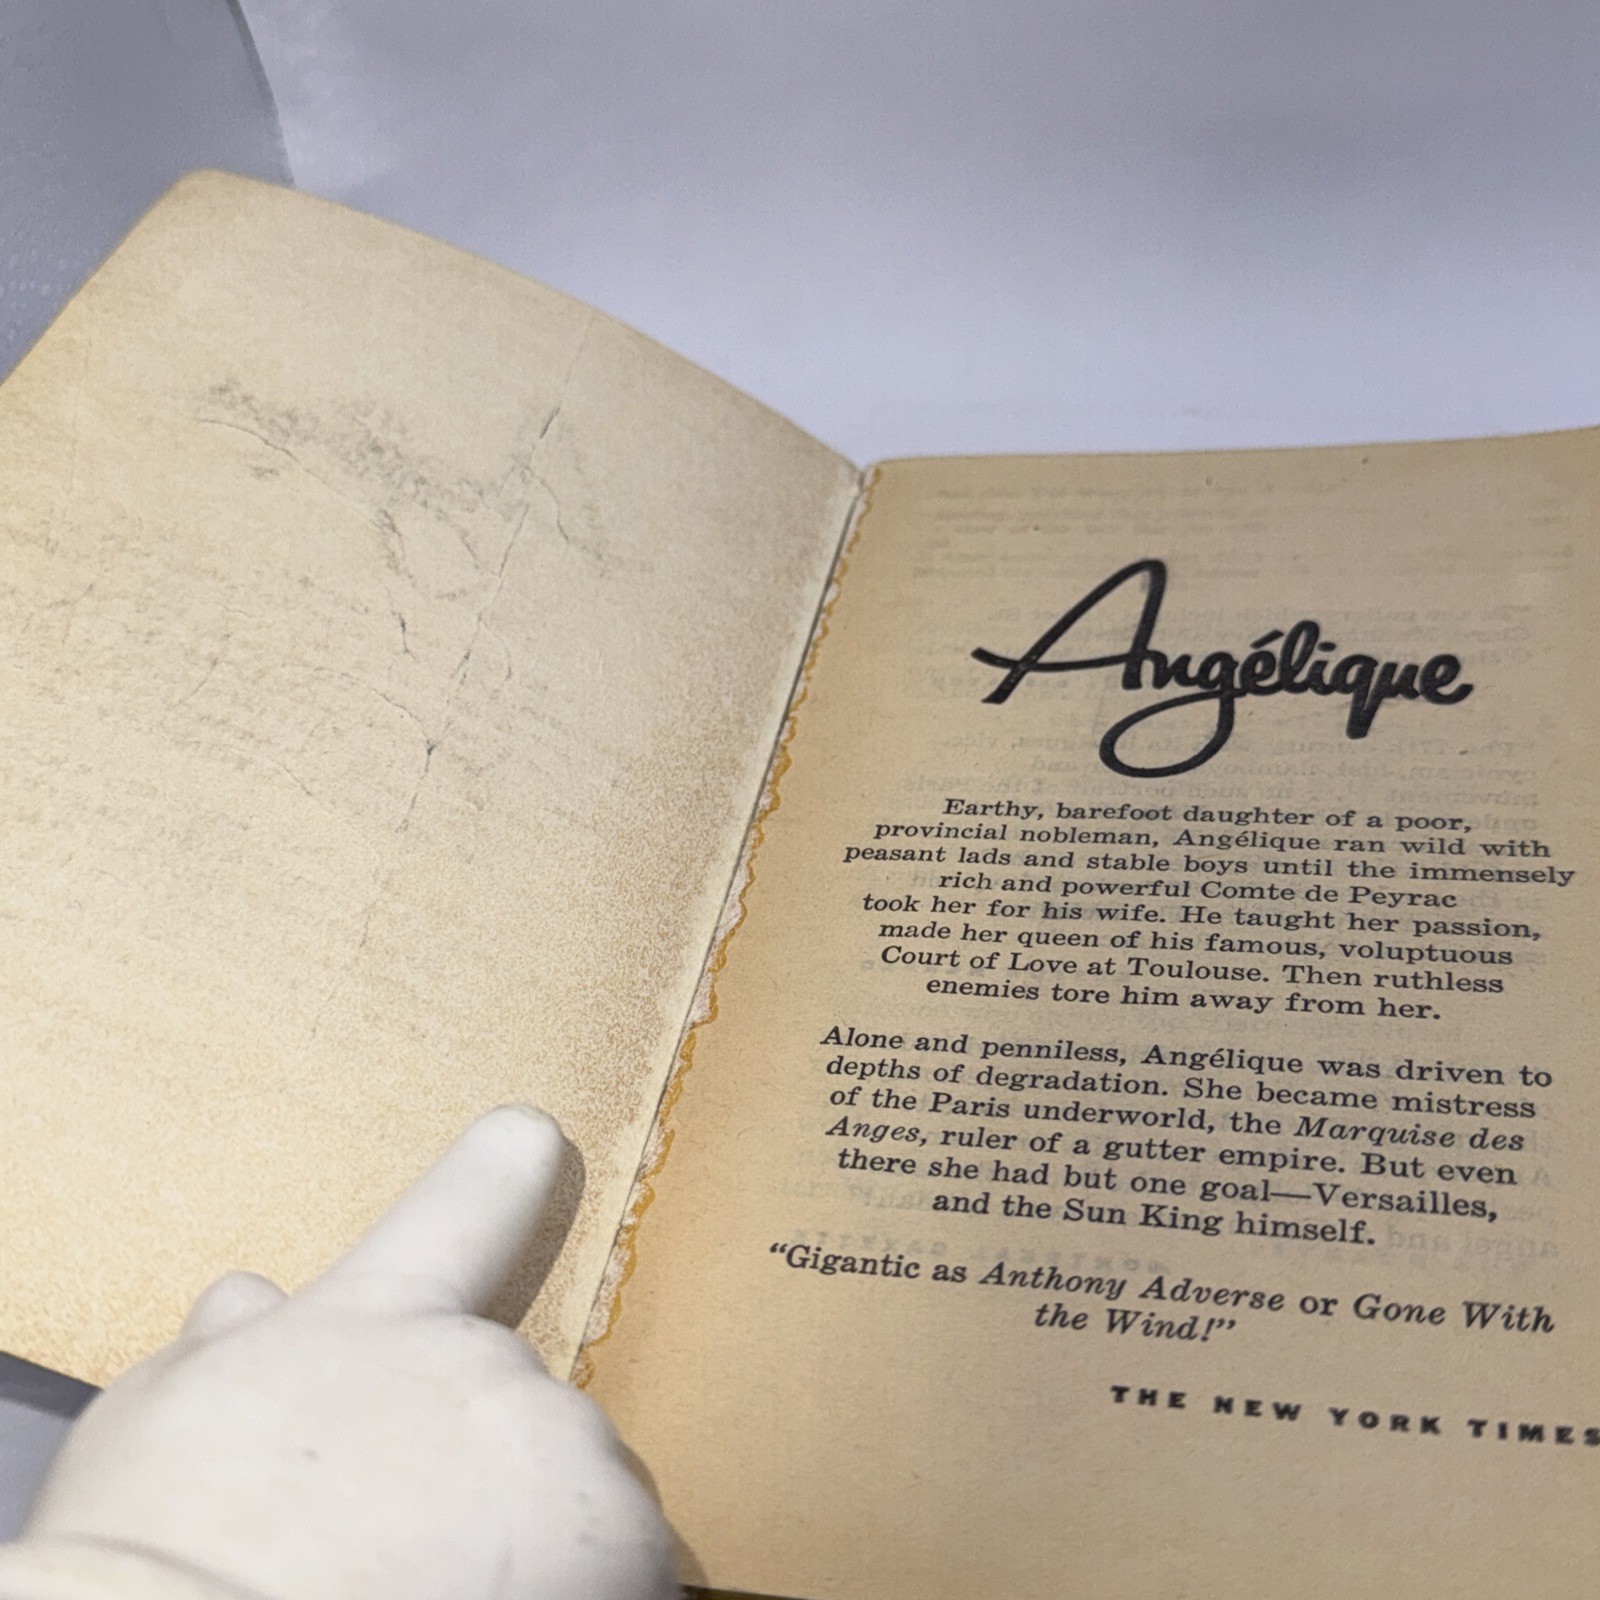 Angélique
Earthy, barefoot daughter of a poor,
provincial nobleman, Angélique ran wild with
peasant lads and stable boys until the immensely
rich and powerful Comte de Peyrac
took her for his wife. He taught her passion,
made her queen of his famous, voluptuous
Court of Love at Toulouse. Then ruthless
enemies tore him away from her.
Alone and penniless, Angélique was driven to
depths of degradation. She became mistress
of the Paris underworld, the Marquise des
Anges, ruler of a gutter empire. But even
there she had but one goal—Versailles,
and the Sun King himself.
“Gigantic as Anthony Adverse or Gone With
the Wind!”
THE NEW YORK TIMES